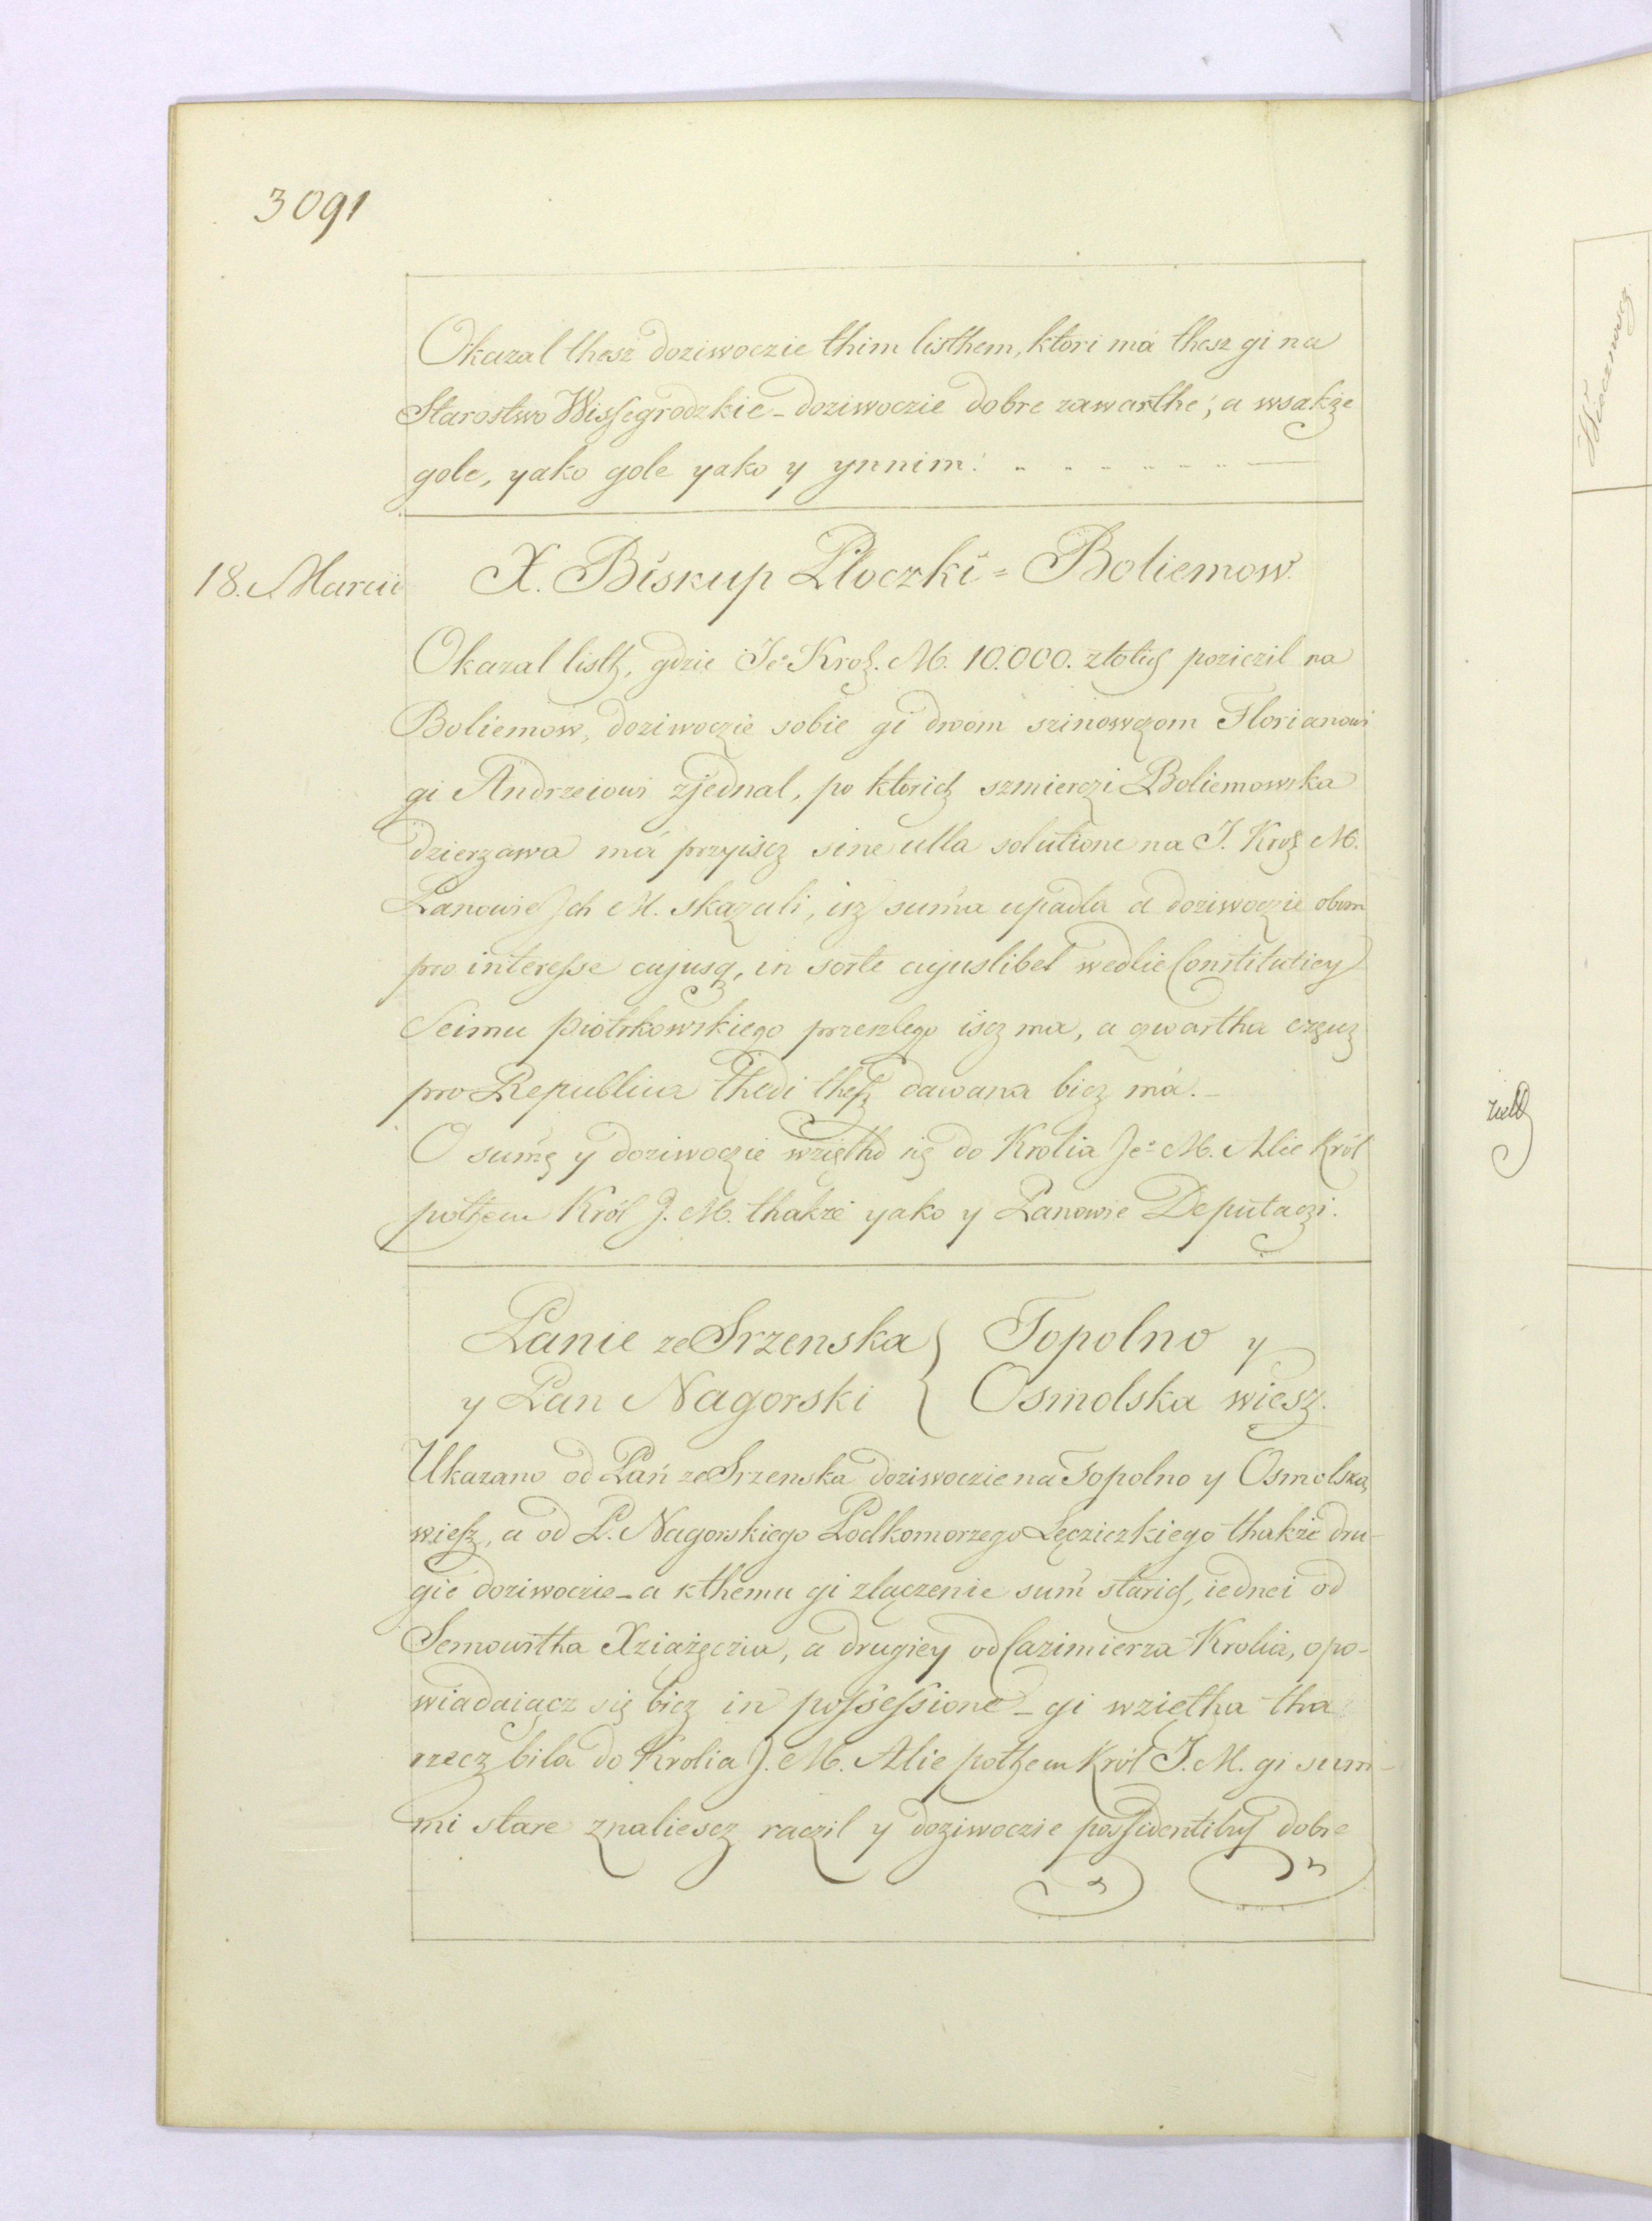 3091
Okazal thesz doziwoczie thim listhem, ktori má thesz gi na
Starostwo Wissegrodzkie - doziwoczie dobre zawarthe; a wsakże
gole, yako gole yako y ynnim.
18. Marcii
X. Biskup Płoczki = Boliemow.
Okazal listh, gdzie Je° Kroz. M. 10.000. złotich poziczil na
Boliemów, doziwoczie sobie gi dwom szinowczom Florianowi
gi Andrzeiowi zjednal, po ktorich szmierczi Boliemowska
dzierzawa má przyiscz sine ulla solutione na J. Kroz M.
Panowie Jch M. skazali, isz suma upadla a doziwoczie obom
pro interesse cujusq, in sorte cujuslibet wedlie Constitutiey
Seimu piotrkowskiego przeszlego iscz ma, a qwartha czsz
pro Republica thedi thesz dawana bicz má. -
O sumę y doziwoczie wziętho się do Krolia Je° M. Alie Król
pothem Król J. M. thakże yako y Panowie Deputaczi.
Panie ze Srzenska } Topolno y
y Pan Nagorski { Osmolska wiesz.
Ukazano od Pań ze Srzenska doziwoczie na Topolno y Osmolską
wiesz, a od P. Nagorskiego Podkomorzego Lęcziczkiego thakże dru-
gié doziwoczie - a kthemu gi zlączenie sum starich, iednei od
Semowitha Xziążęczia, a drugiey od Cazimierza Krolia, opo-
wiadaiącz się bicz in possessione - gi wzietha tha
rzecz bila do Krolia J. M. Alie pothem Król J. M. gi sum-
mi stare znaliescz raczil y doziwoczie possidentibus dobre